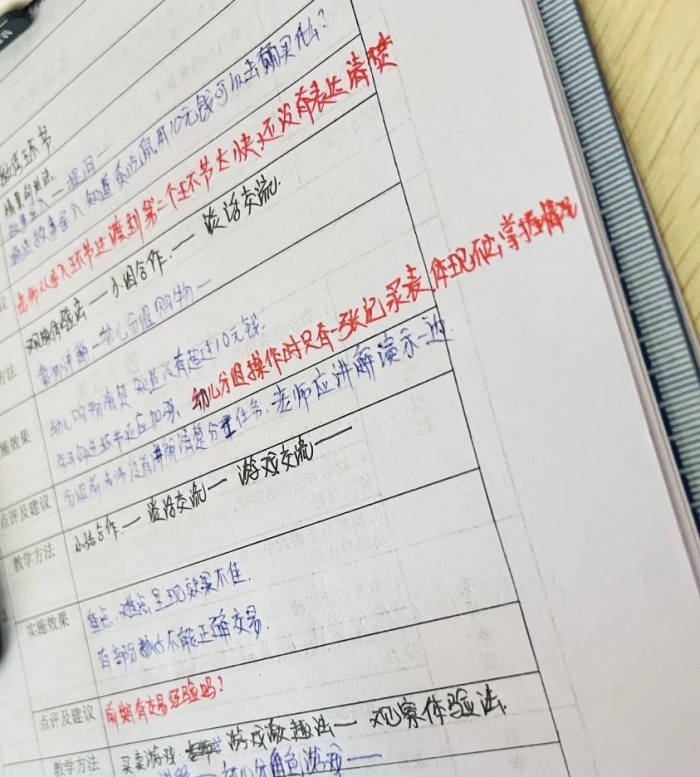 教学环节
情景创设法
故事导入——提问——
通过故事导入 知道 用10元钱可以去购买什么?
老师从导入环节过渡到第二个环节太快,还没有表达清楚
观察体验法——小组合作.——谈话交流.
老师讲解——幼儿分组购物——
幼儿购物清楚 知道没有超过10元钱.
幼儿分组操作时只有一张记录表,体现不出掌握情况
分组前老师没有讲解清楚分工任务,老师应讲解演示一遍.
点评及建议
教学方法 小组合作.——谈话交流——游戏交流——
实施效果 重点、难点呈现效果不佳.
有部分幼儿不能正确交易.
点评及建议 前期有交易经验吗?
教学方法 买卖游戏. 游戏激趣法——观察体验法.
幼儿分角色游戏——